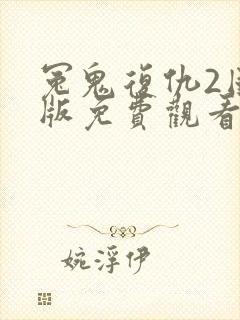 冤鬼復仇2国
版免費觀看
婉浮伊